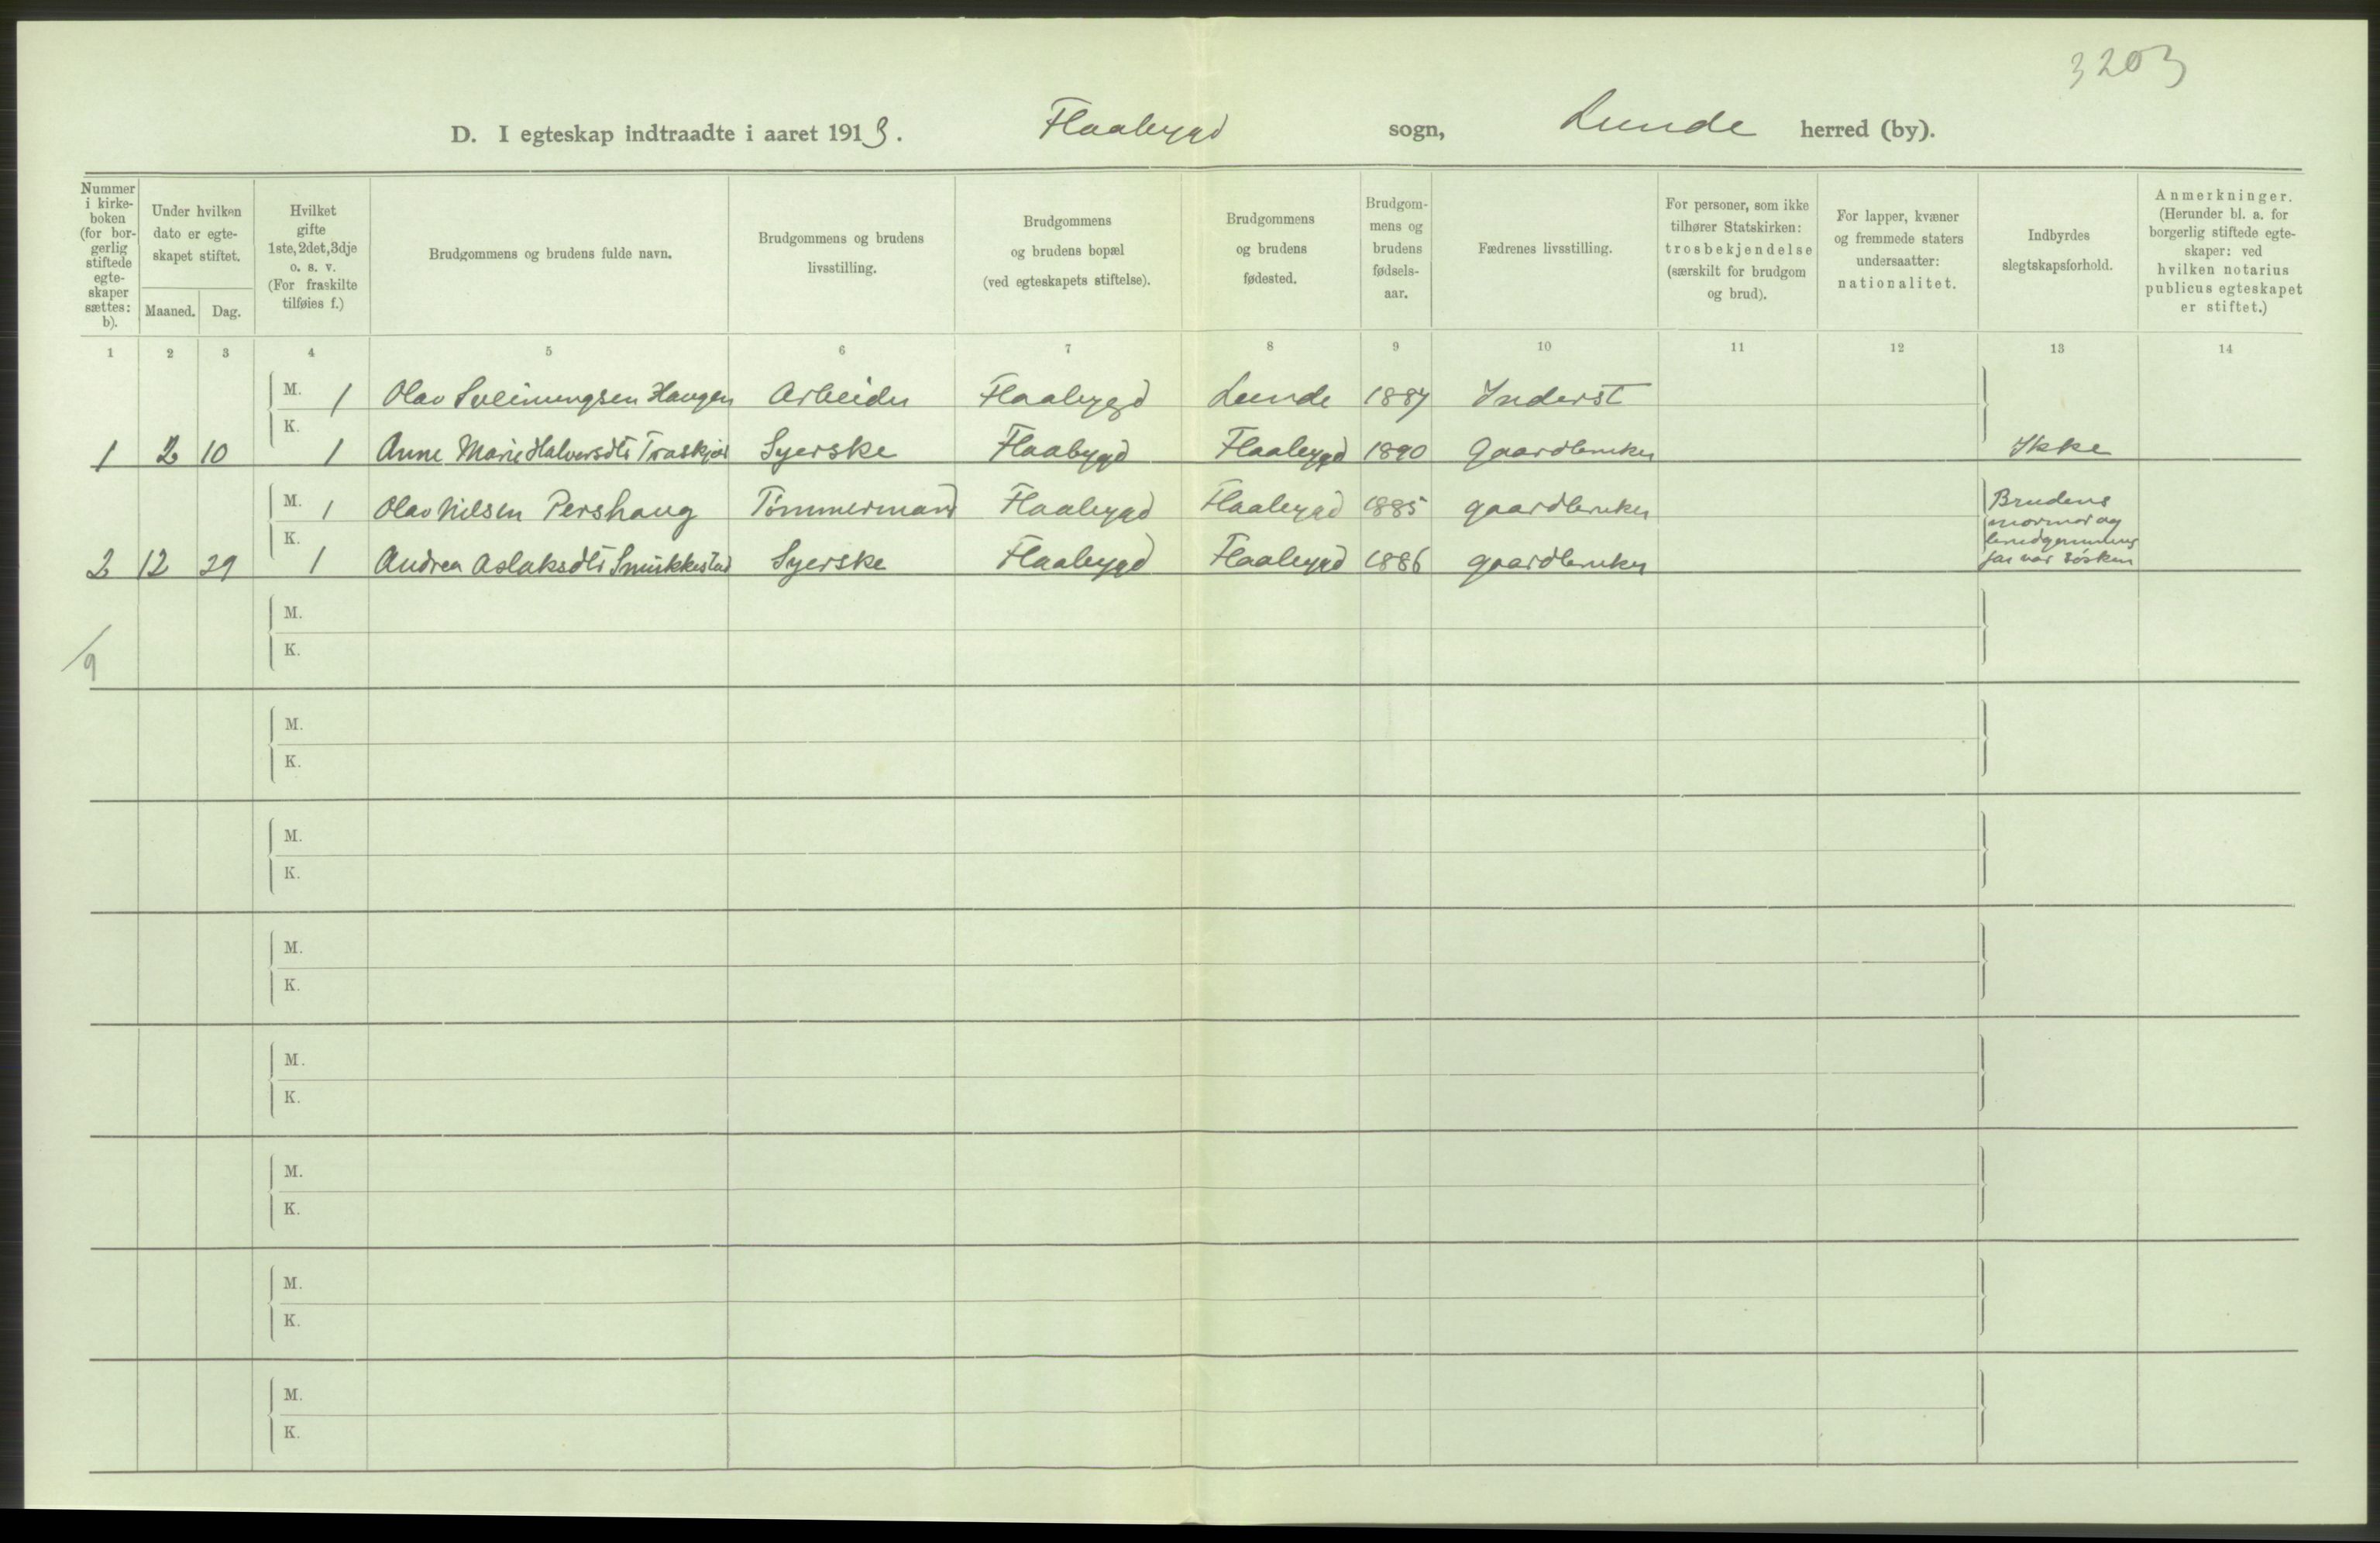 3203
D. I egteskap indtraadte i aaret 1913. Flaabygd sogn, Lunde herred (by).
Nummer i kirkeboken (for borgerlig stiftede egteskaper sættes: b).
Under hvilken dato er egteskapet stiftet.
Maaned. Dag.
Hvilket gifte 1ste, 2det, 3dje o. s. v. (For fraskilte tilføies f.)
Brudgommens og brudens fulde navn.
Brudgommens og brudens livsstilling.
Brudgommens og brudens bopæl (ved egteskapets stiftelse).
Brudgommens og brudens fødested.
Brudgommens og brudens fødselsaar.
Fædrenes livsstilling.
For personer, som ikke tilhører Statskirken: trosbekjendelse (særskilt for brudgom og brud).
For lapper, kvæner og fremmede staters undersaatter: nationalitet.
Indbyrdes slegtskapsforhold.
Anmerkninger. (Herunder bl. a. for borgerlig stiftede egteskaper: ved hvilken notarius publicus egteskapet er stiftet.)
1 2 3 4 5 6 7 8 9 10 11 12 13 14
M. 1 Olav Sveinungsen Haugen Arbeider Flaabygd Lunde 1887 Inderst
1 2 10 K. 1 Anne Marie Halvorsdtr Flaabygd Syerske Flaabygd 1890 Gaardbruker Ikke
M. 1 Olav Nilsen Pershaug Tømmermand Flaabygd Flaabygd 1885 gaardbruker
2 12 29 K. 1 Andrea Aslaksdtr Smukkestad Syerske Flaabygd Flaabygd 1886 gaardbruker
Brudens
mormor og
brudgommens
far var søsken
M.
K.
/9
M.
K.
M.
K.
M.
K.
M.
K.
M.
K.
M.
K.
M.
K.